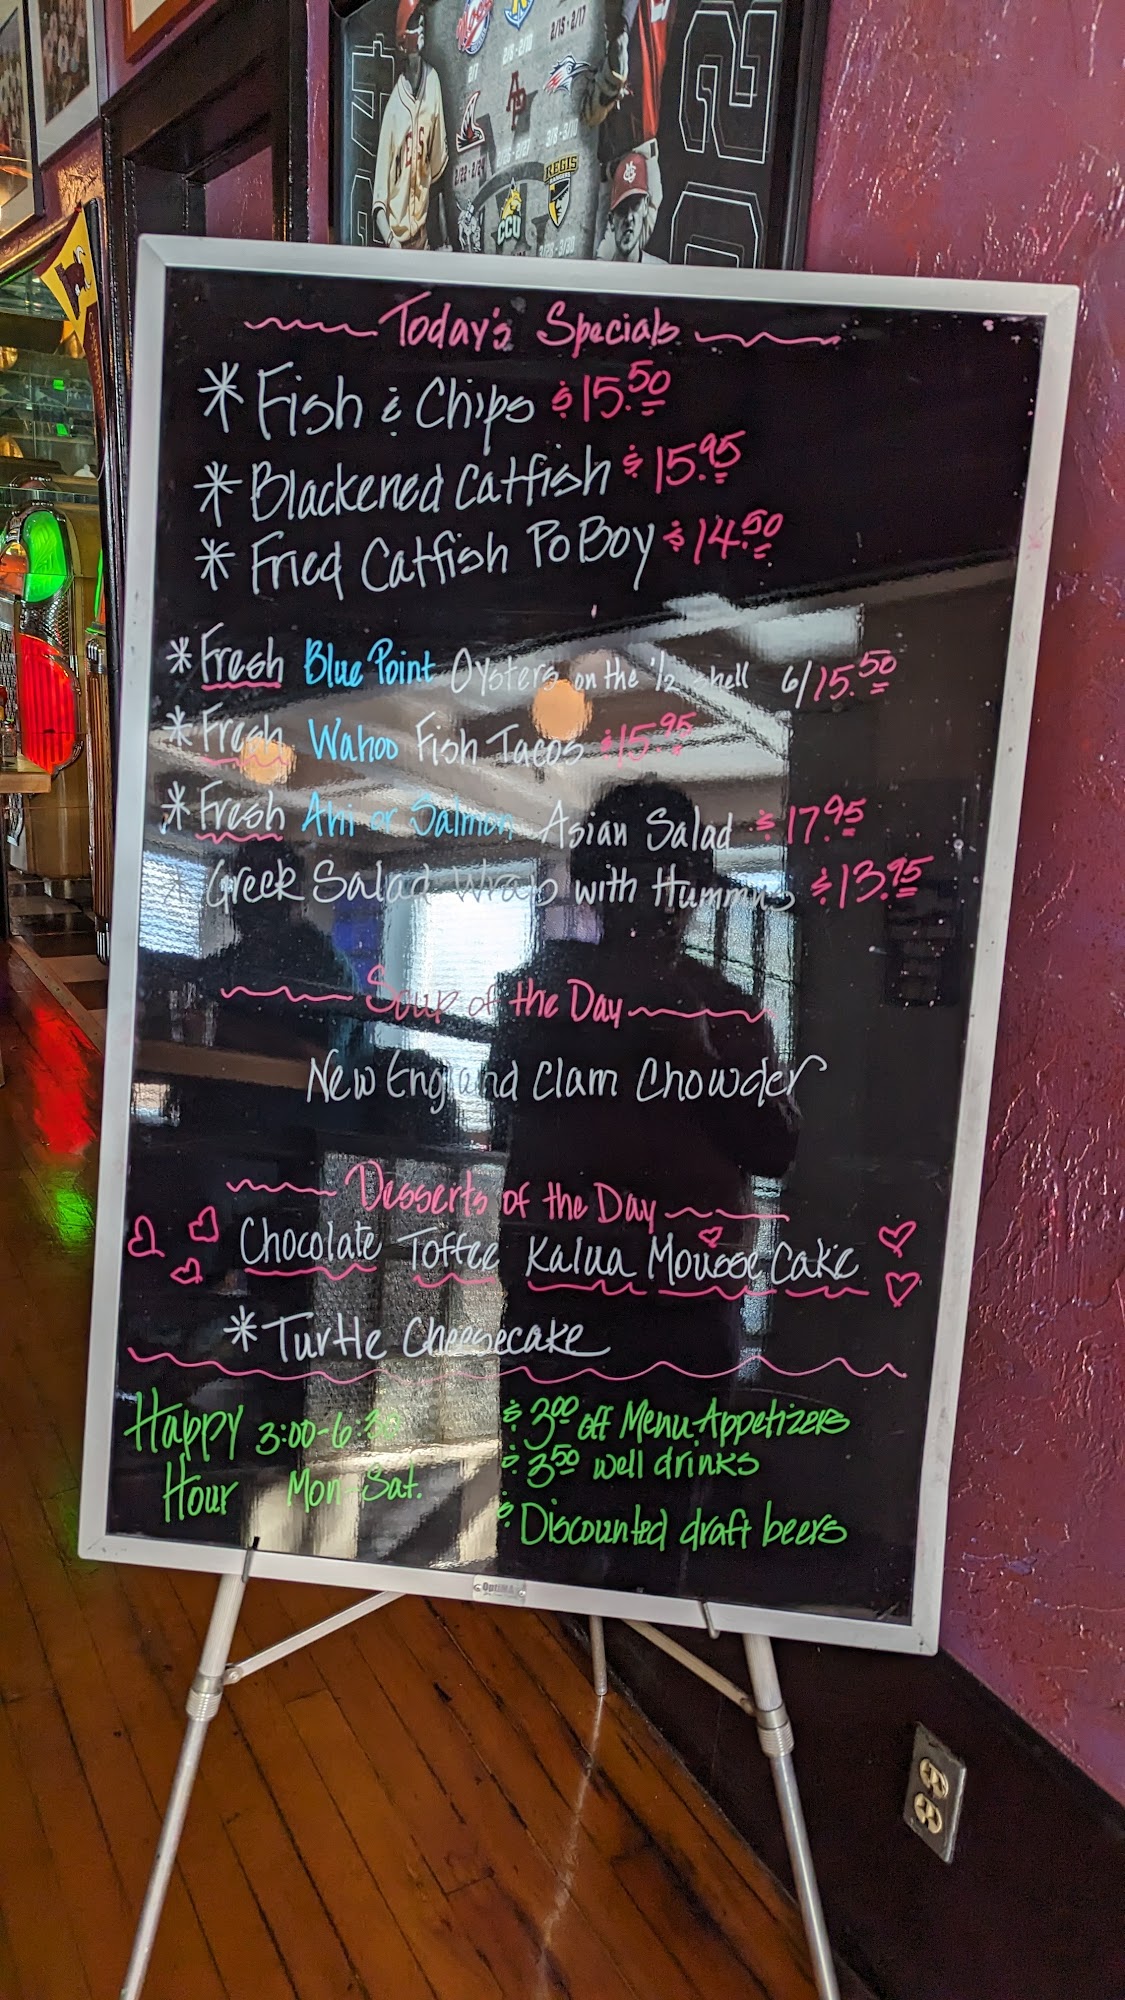 2/15 - 2/17
REGIS
CCU
Today's Specials
* Fish & Chips $15.50
* Blackened Catfish $15.95
* Fried Catfish Po Boy $14.50
* Fresh Blue Point Oysters on the 1/2 shell 6/15.50
* Fresh Wahoo Fish Tacos $15.95
* Fresh Ahi or Salmon Asian Salad $17.95
* Greek Salad Wraps with Hummus $13.95
Soup of the Day
New England Clam Chowder
Desserts of the Day
Chocolate Toffee Kalua Mousse Cake
* Turtle Cheesecake
Happy Hour 3:00-6:30 Mon-Sat.
$3.00 off Menu Appetizers
$3.50 well drinks
$ Discounted draft beers
OptiMA